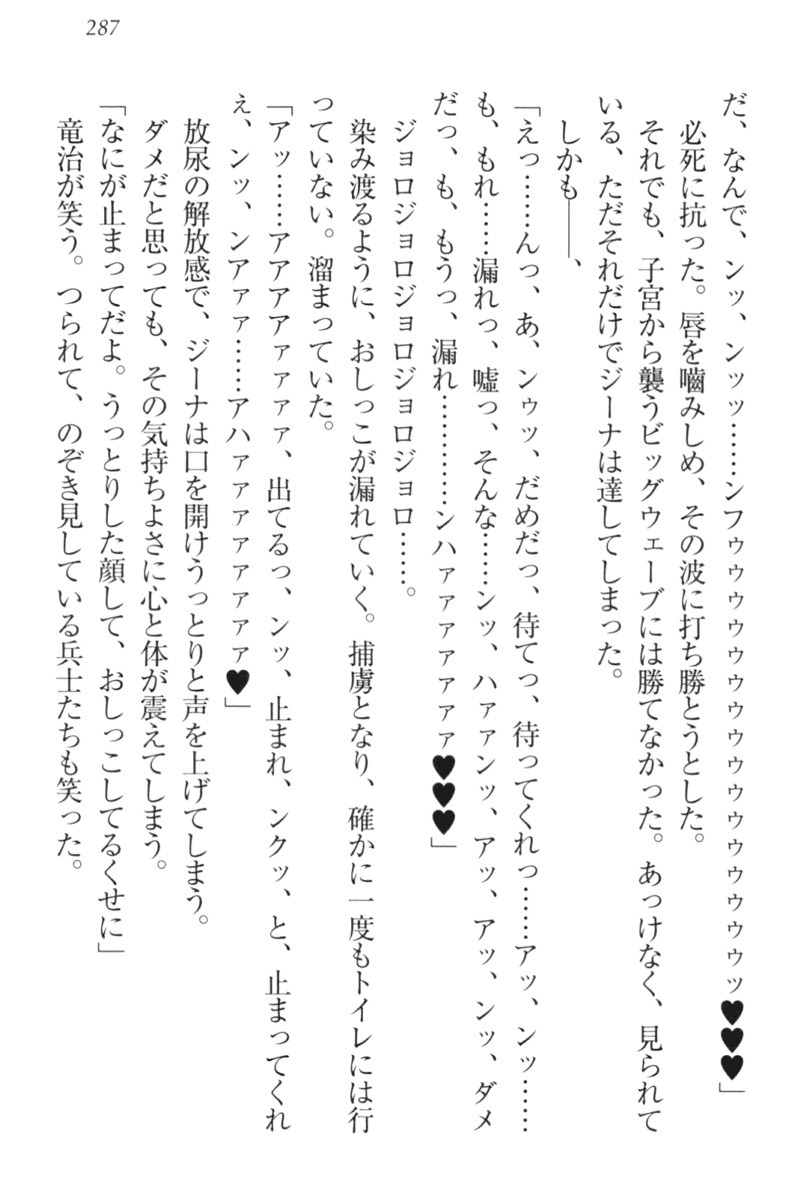 287
だ、なんで、ンッ、ンッッ……ンフゥゥゥゥゥゥゥゥゥゥゥゥゥゥゥゥッ♥♥♥」
必死に抗った。唇を嚙みしめ、その波に打ち勝とうとした。
それでも、子宮から襲うビッグウェーブには勝てなかった。あっけなく、見られて
いる、ただそれだけでジーナは達してしまった。
しかも――、
「えっ……んっ、あ、ンゥッ、だめだっ、待てっ、待ってくれっ……アッ、ンッ……
も、もれ……漏れっ、嘘っ、そんな……ンッ、ハァァンッ、アッ、アッ、ンッ、ダメ
だっ、も、もうっ、漏れ…………ンハァァァァァァァ♥♥♥」
ジョロジョロジョロジョロ……。
染み渡るように、おしっこが漏れていく。捕虜となり、確かに一度もトイレには行
っていない。溜まっていた。
「アッ……アアアアァァァァ、出てるっ、ンッ、止まれ、ンクッ、と、止まってくれ
ぇ、ンッ、ンアァァ……アハァァァァァァァァ♥」
放尿の解放感で、ジーナは口を開けうっとりと声を上げてしまう。
ダメだと思っても、その気持ちよさに心と体が震えてしまう。
「なにが止まってだよ。うっとりした顔して、おしっこしてるくせに」
竜治が笑う。つられて、のぞき見している兵士たちも笑った。